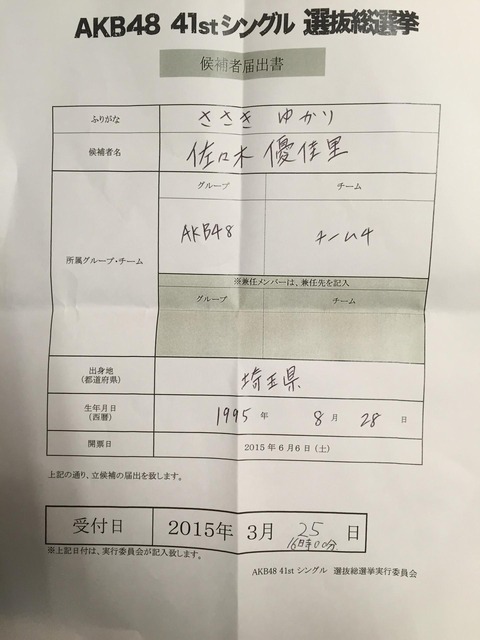 AKB48 41stシングル 選抜総選挙
候補者届出書
ふりがな ささき ゆかり
候補者名 佐々木 優佳里
所属グループ・チーム
グループ チーム
AKB48 チーム4
※兼任メンバーは、兼任先を記入
グループ チーム
出身地
(都道府県)
埼玉県
生年月日
(西暦)
1995 年 8 月 28 日
開票日 2015年6月6日(土)
上記の通り、立候補の届出を致します。
受付日 2015年 3月 25 日
16時00分
※上記日付は、実行委員会が記入致します。
AKB48 41stシングル 選抜総選挙実行委員会